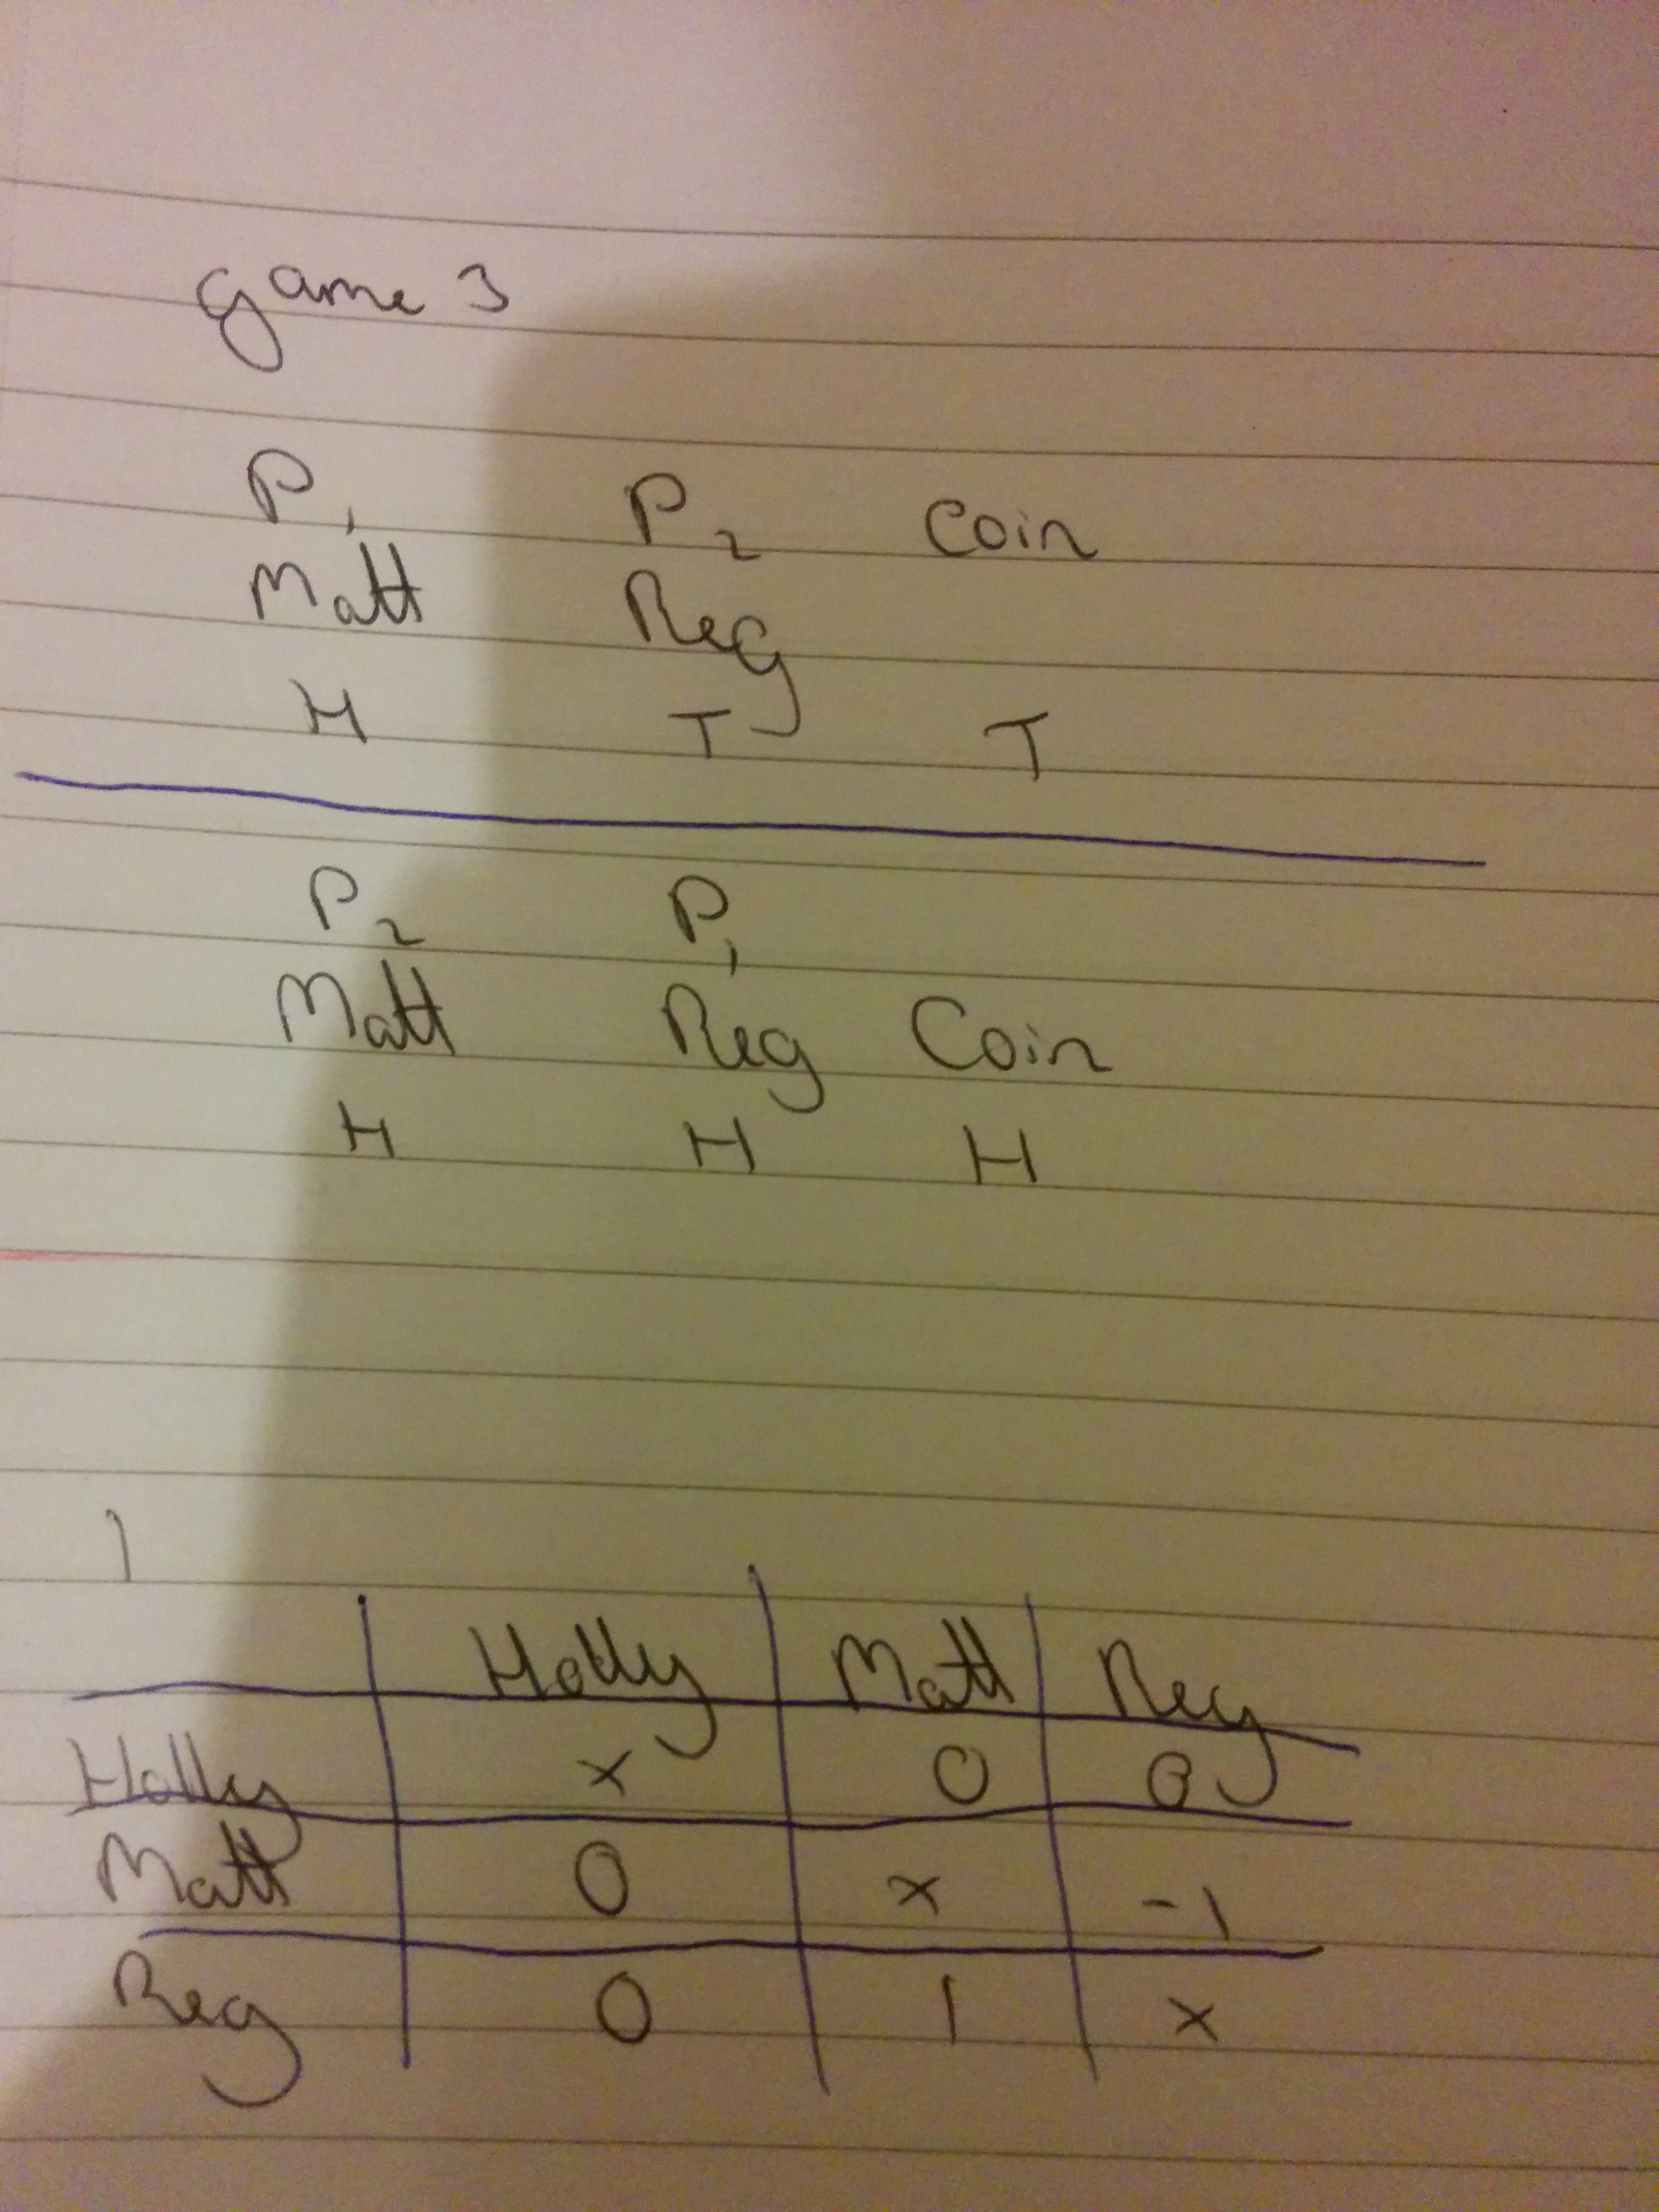 Game 3
P1 P2 Coin
Matt Reg
H T T
P2 P1
Matt Reg Coin
H H H
1
Holly Matt Reg
Holly x 0 0
Matt 0 x -1
Reg 0 1 x